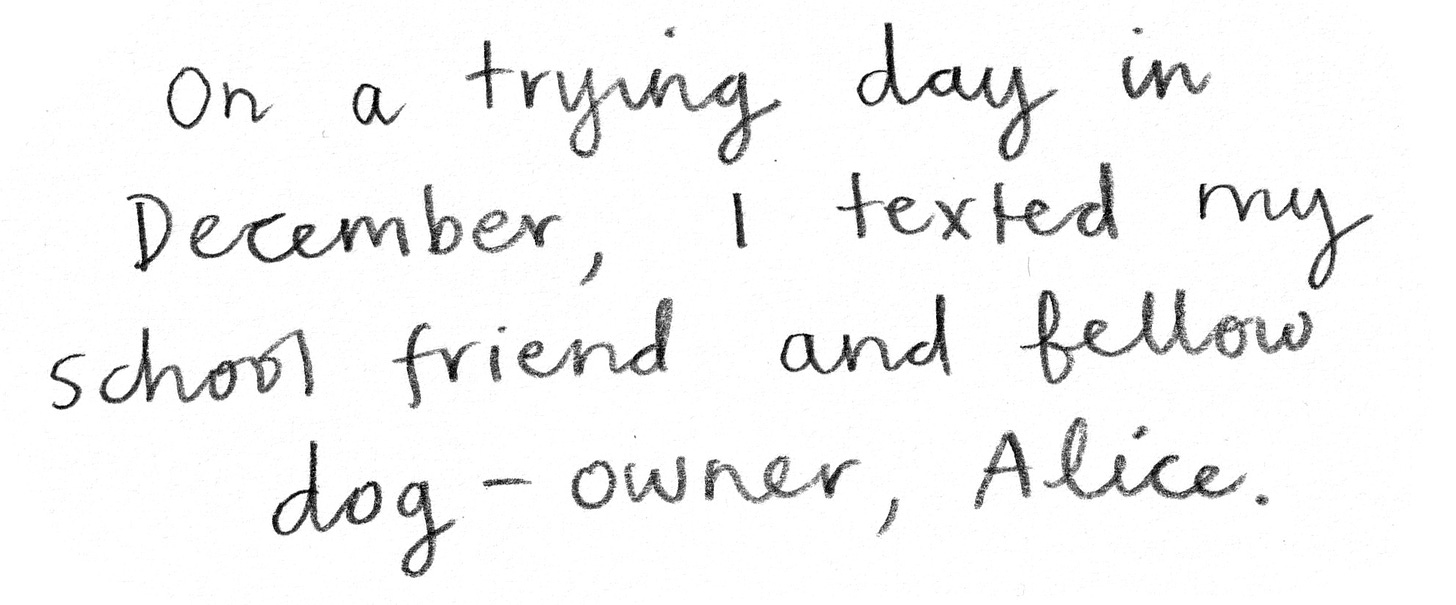 On a trying day in
December, I texted my
school friend and fellow
dog-owner, Alice.